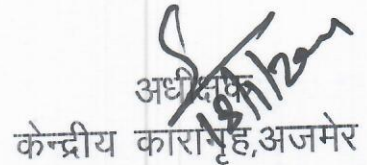 अधीक्षक
केन्द्रीय कारागृह,अजमेर